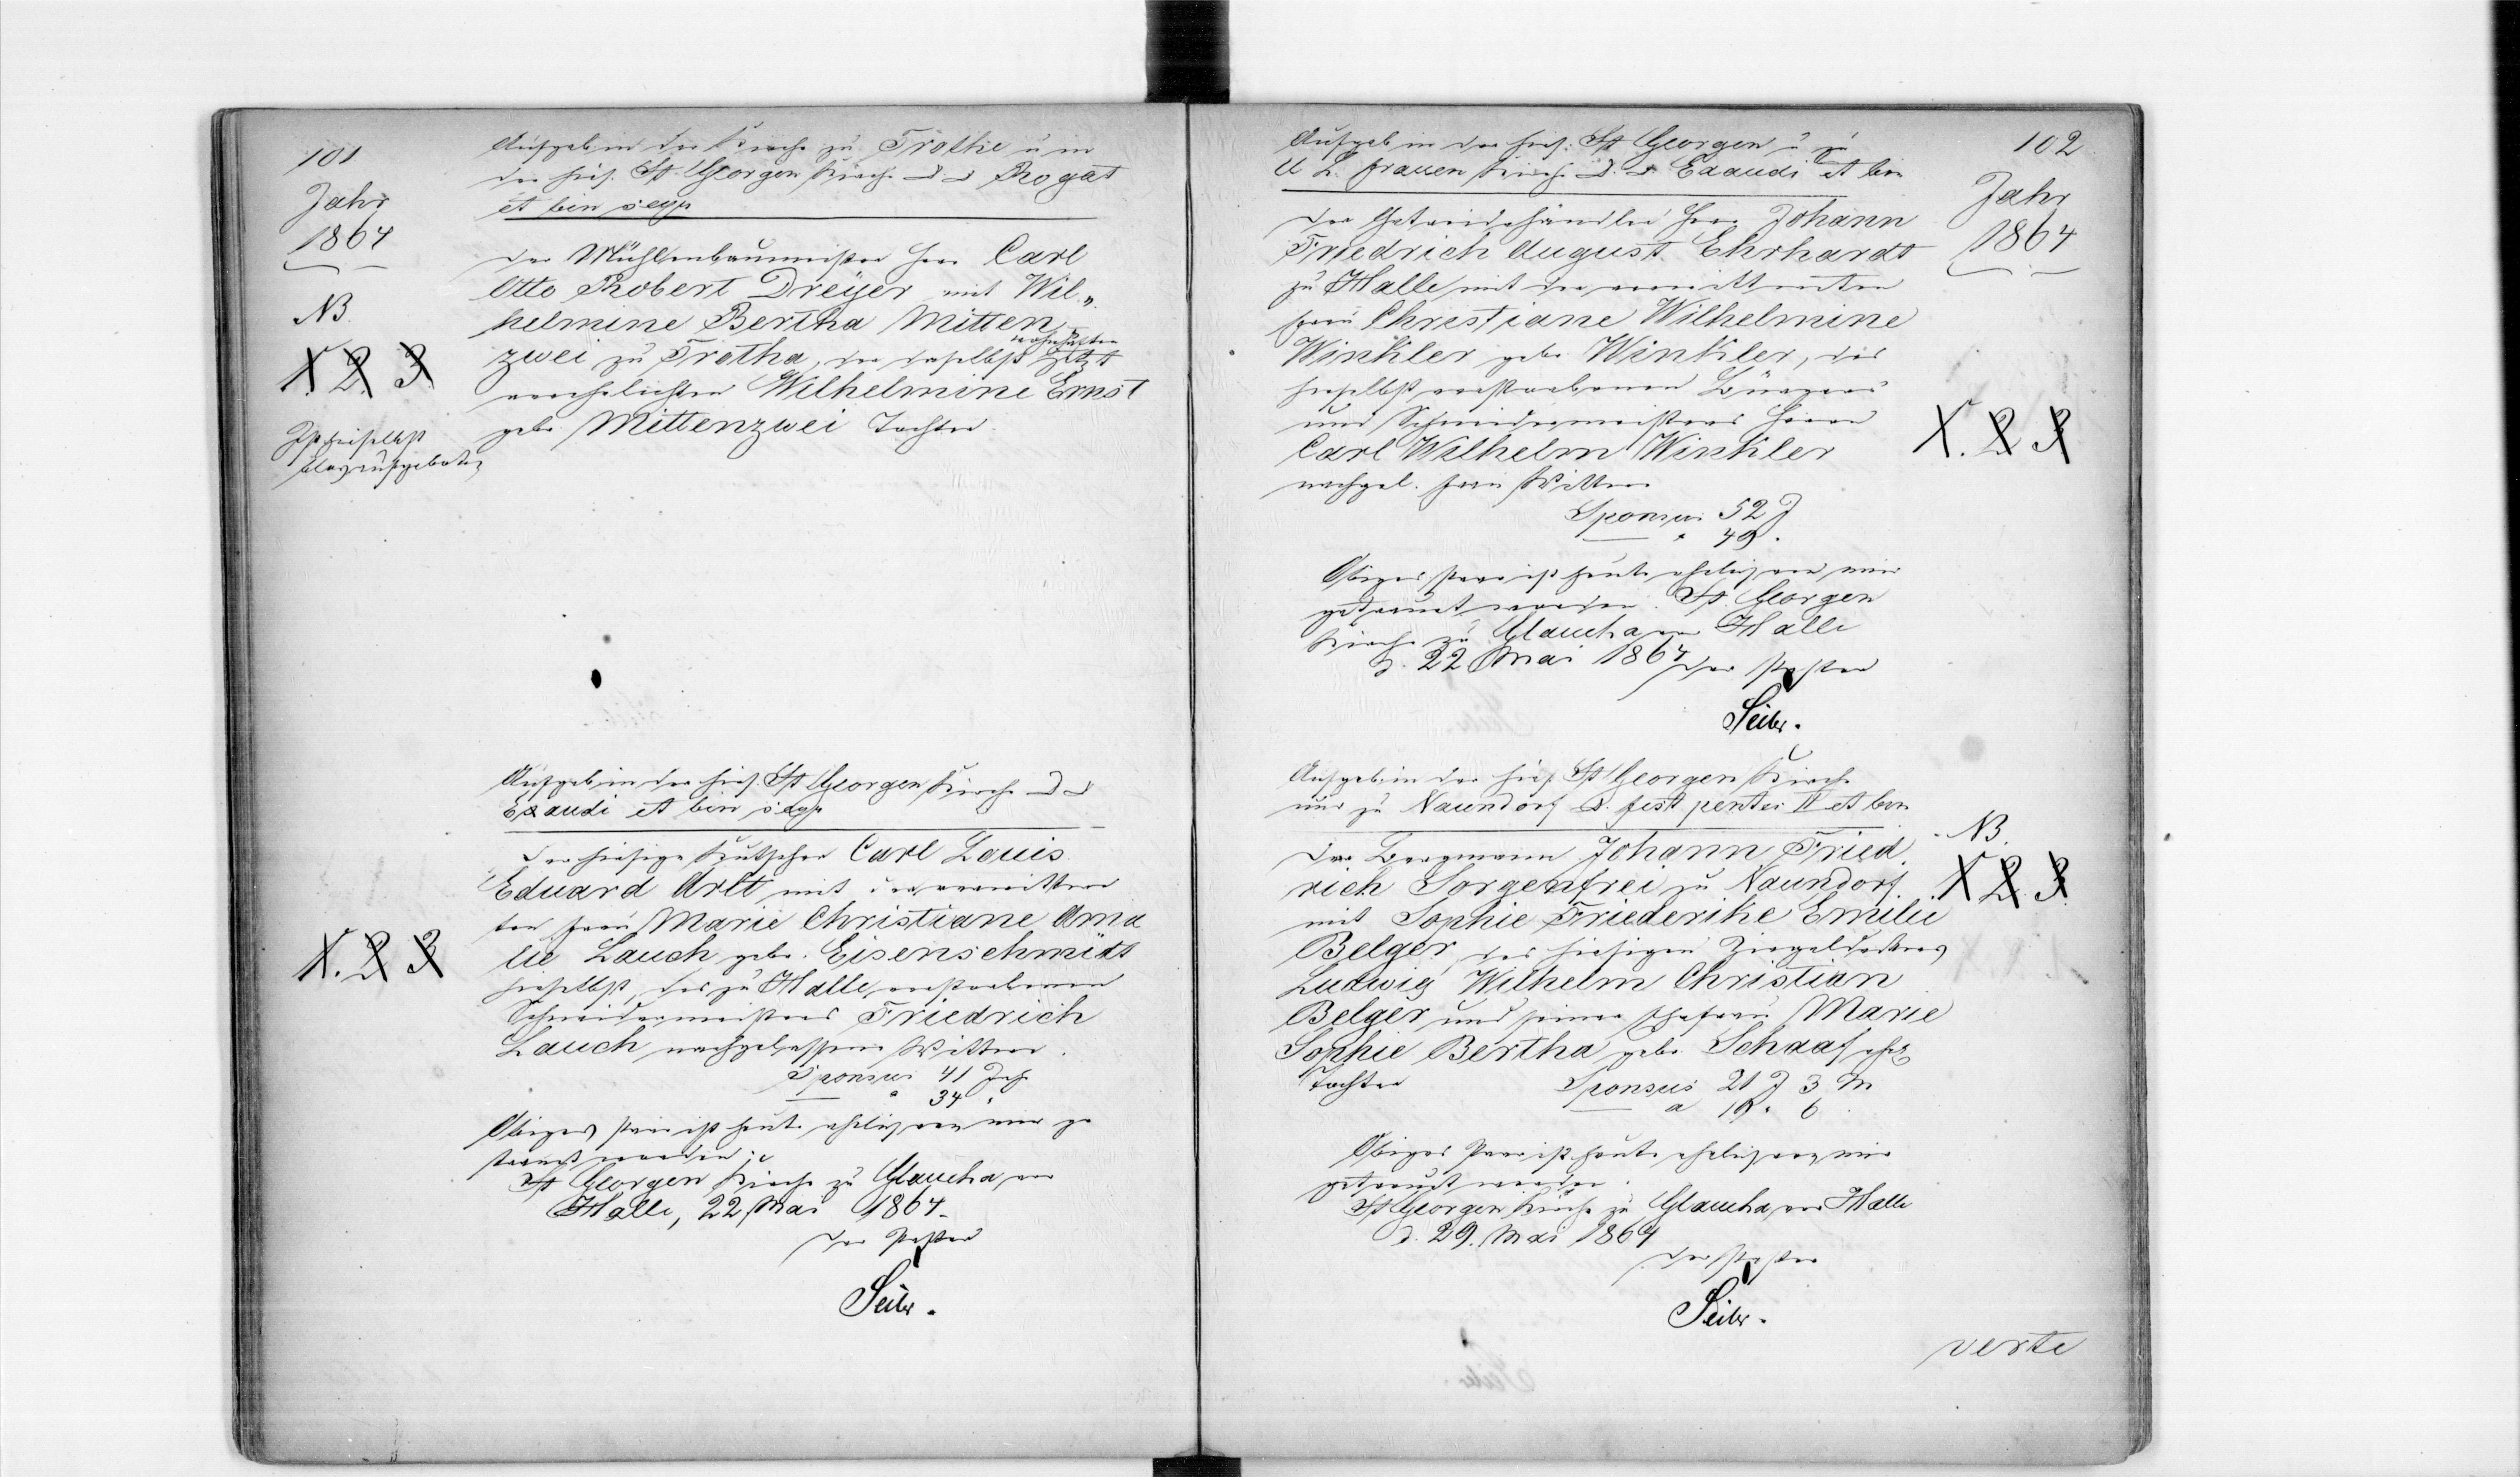 101
Jahr
1864
NB.
1. 2. 3.
Ist hieselbst
blos aufgeboten
Aufgeb in der Kirche zu Trothe u in
der hies. St. Georgen Kirche D. d Rogat
et bin seqq
Der Mühlenbaumeister Herr Carl
Otto Robert Dreyer mit Wil„
helmine Bertha Mitten
wohnhaften
zwei zu Trotha, der daselbst jetzt
verehelichten Wilhelmine Ernst
geb. Mittenzwei Tochter.
Aufgeb in der hies. St Georgen Kirche D d
Exaudi et bin seqq
1. 2 3
Der hiesige Kutscher Carl Louis
Eduard Arlt mit der verwittwe
ten Frau Marie Christiane Ama
lie Lauch geb. Eisenschmidt
hieselbst, des zu Halle verstorbenen
Schneidermeisters Friedrich
Lauch nachgelassene Wittwe.
Sponsus 41 Jah
— a 34 "
Obiges Paar ist heute ehelich von mir ge
traut worden.
St Georgen Kirche zu Glaucha vor
Halle, 22 Mai 1864.
Der Pastor
Seiler.
102
Jahr
1864
Aufgeb in der hies. St Georgen u zu
U L. Frauen Kirche D. d Exaudi et bin
Der Getreidehändler Herr Johann
Friedrich August Ehrhardt
zu Halle mit der verwittweten
Frau Christiane Wilhelmine
Winkler geb. Winkler, des
hieselbst verstorbenen Bürgers
und Schneidermeisters Herrn
Carl Wilhelm Winkler
nachgel. Frau Wittwe
1. 2 3
Sponsus 52 J
— a 49.
Obiges Paar ist heute ehelich von mir
getraut worden. St. Georgen
Kirche zu Glaucha vor Halle
d. 22 Mai 1864
Der Pastor
Seiler.
Aufgeb. in der hies St Georgen Kirche
und zu Naundorf d. fest pentec II et bin
NB.
1 2. 3
Der Bergmann Johann Fried
rich Sorgenfrei zu Naundorf
mit Sophie Friederike Emilie
Belger, des hiesigen
Ludwig Wilhelm Christian
Belger und seiner Ehefrau Marie
Sophie Bertha geb. Schaaf ehel
Tochter
Sponsus 21 J 3 M
— a 19. 6.
Obiges Paar ist heute ehelich von mir
getraut worden.
St Georgen Kirche zu Glaucha vor Halle
d. 29. Mai 1864
Der Pastor
Seiler.
verte